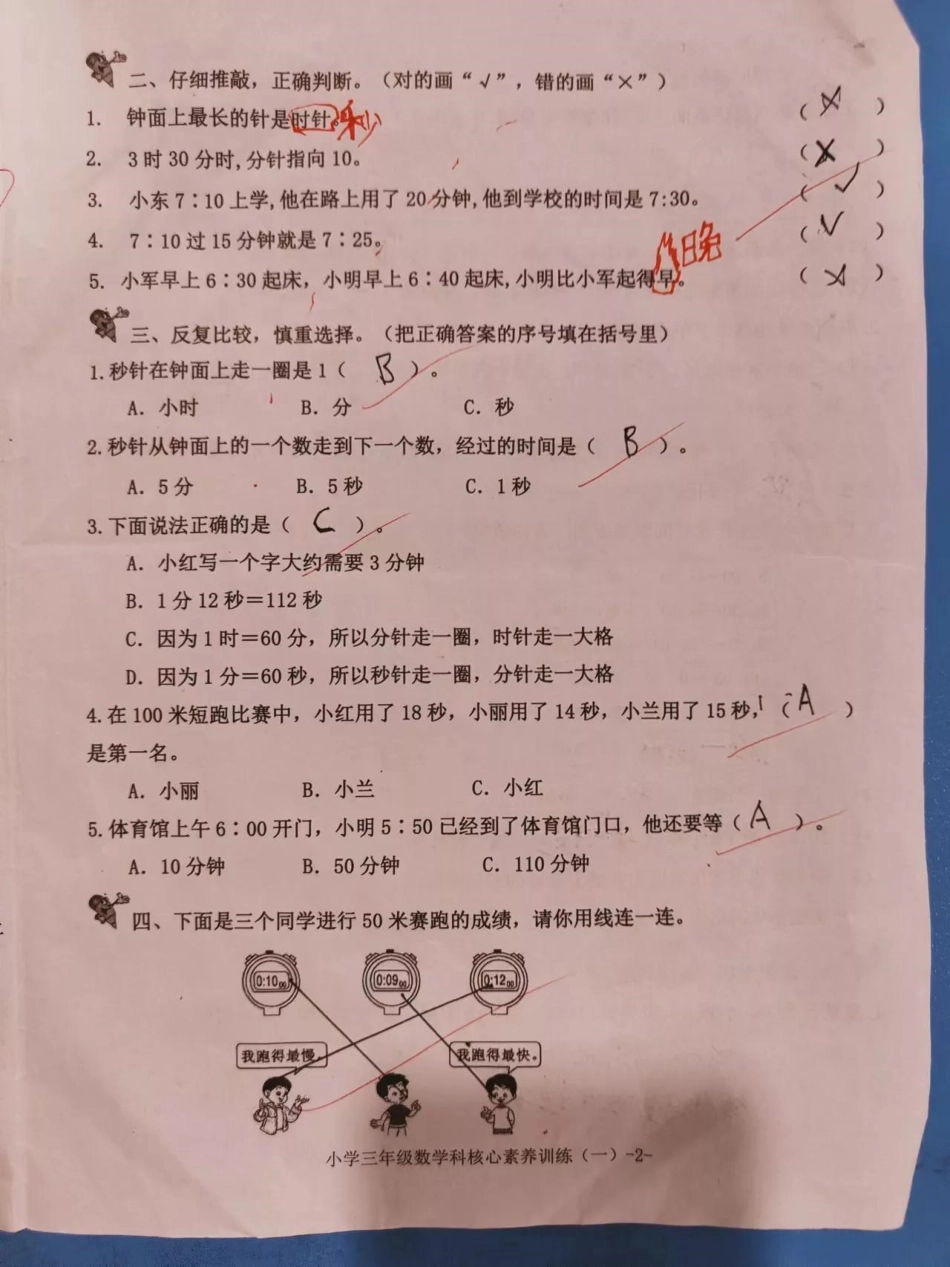 二、仔细推敲，正确判断。（对的画“√”，错的画“×”）
1. 钟面上最长的针是时针。秒 （ × ）
2. 3时30分时,分针指向10。 （ × ）
3. 小东7∶10上学,他在路上用了20分钟,他到学校的时间是7:30。 （ √ ）
4. 7∶10过15分钟就是7∶25。 （ √ ）
晚
5. 小军早上6∶30起床，小明早上6∶40起床,小明比小军起得早。 （ × ）
三、反复比较，慎重选择。（把正确答案的序号填在括号里）
1.秒针在钟面上走一圈是1（ B ）。
A. 小时 B. 分 C. 秒
2.秒针从钟面上的一个数走到下一个数，经过的时间是（ B ）。
A. 5分 B. 5秒 C. 1秒
3.下面说法正确的是（ C ）。
A. 小红写一个字大约需要3分钟
B. 1分12秒＝112秒
C. 因为1时＝60分，所以分针走一圈，时针走一大格
D. 因为1分＝60秒，所以秒针走一圈，分针走一大格
4.在100米短跑比赛中，小红用了18秒，小丽用了14秒，小兰用了15秒，（ A ）
是第一名。
A. 小丽 B. 小兰 C. 小红
5.体育馆上午6∶00开门，小明5∶50已经到了体育馆门口，他还要等（ A ）。
A. 10分钟 B. 50分钟 C. 110分钟
四、下面是三个同学进行50米赛跑的成绩，请你用线连一连。
0:10 00 0:09 00 0:12 00
我跑得最慢。 我跑得最快。
小学三年级数学科核心素养训练（一）-2-